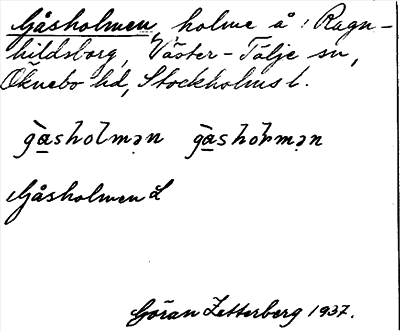 Gåsholmen, holme å Ragn-
hildsborg, Väster-Tälje sn,
Öknebo hd, Stockholms l.
gåsholmən gåsholmən
Gåsholmen L
Göran Zetterberg 1937.